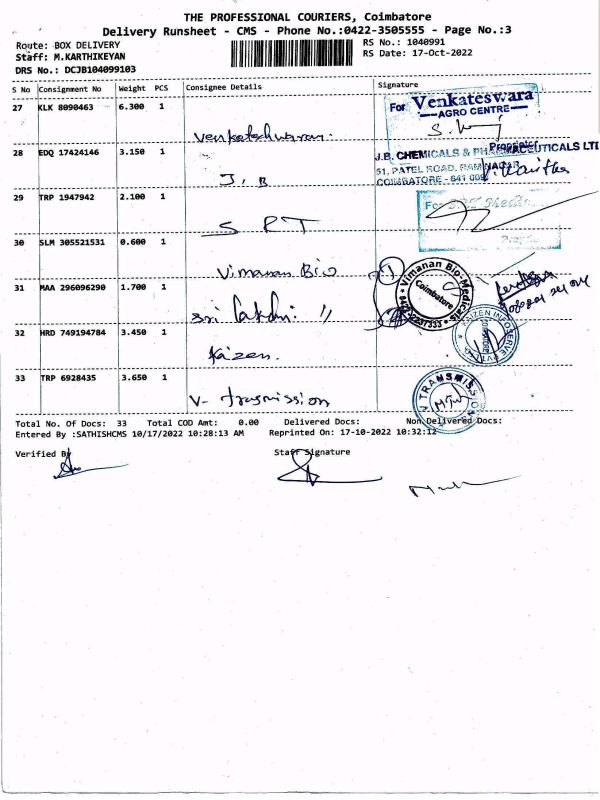 THE PROFESSIONAL COURIERS, Coimbatore
Delivery Runsheet - CMS - Phone No.:0422-3505555 - Page No.:3
Route: BOX DELIVERY RS No.: 1040991
Staff: M.KARTHIKEYAN RS Date: 17-Oct-2022
DRS No.: DCJB104099103
S No Consignment No Weight PCS Consignee Details Signature
27 KLK 8090463 6.300 1
For Venkateswara
AGRO CENTRE
Venkateshwaran.
Proprietor
28 EDQ 17424146 3.150 1
J.B. CHEMICALS & PHARMACEUTICALS LT
51, PATEL ROAD, RAM NAGAR
COIMBATORE - 641 009
J. B
29 TRP 1947942 2.100 1
For
S R T
30 SLM 305521531 0.600 1
Vimanan Bio
Vimanan Bio-Medicals
Coimbatore
31 MAA 296096290 1.700 1
Sri lakshmi "
32 HRD 749194784 3.450 1
Kaizen.
33 TRP 6928435 3.650 1
V- trasmission
V TRANSMISSION
Total No. Of Docs: 33 Total COD Amt: 0.00 Delivered Docs: Non Delivered Docs:
Entered By :SATHISHCMS 10/17/2022 10:28:13 AM Reprinted On: 17-10-2022 10:32:12
Verified By Staff Signature